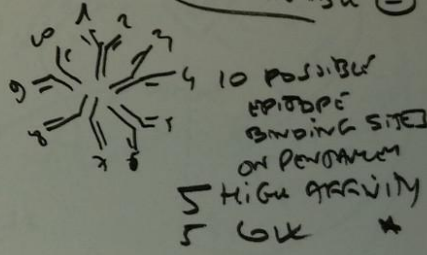 1
2
3
4 10 POSSIBLE
EPITOPE
BINDING SITES
ON PENTAMER
5 HIGH AFFINITY
5 LOW